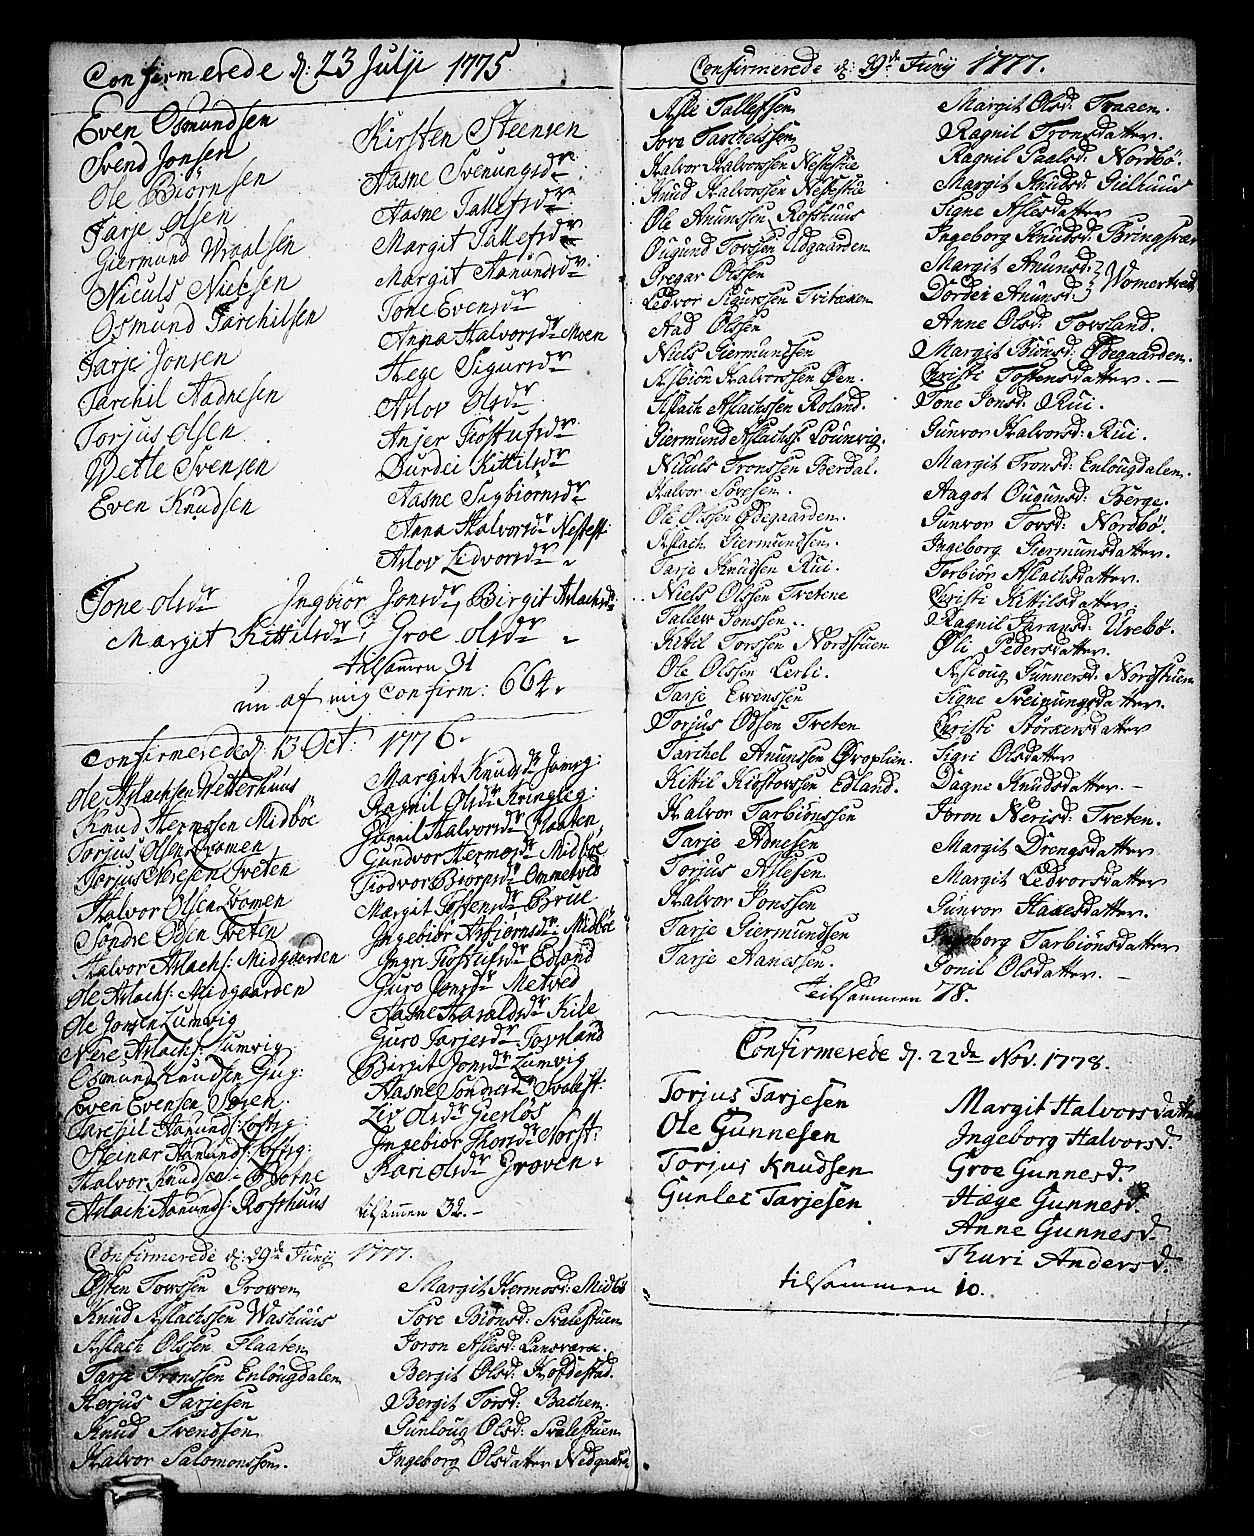 Confirmerede d: 23 Julji 1775
Even Osmundsen
Svend Jonsen
Ole Biörnsen
Tarje Olsen
Giermund Wraalsen
Niculs Nielsen
Osmund Tarchilsen
Tarje Jonsen
Tarchil Aadnesen
Torjus Olsen
Wetle Svensen
Even Knudsen
Kirsten Steensen
Aasne Svenungsdr
Aasne Tallefsdr
Margit Tallefsdr
Margit Aanundsdr
Tone Evensdr
Anna Halvorsdr Moen
Hege Sigursdr
Aslov Olsdr
Anjer Tiostufsdr
Durdei Kittilsdr
Aasne Segbiornsdr
Anna Halvorsdr Nestest:
Aslov Ledvorsdr
Tone Olsdr Ingbiör Jonsdr, Birgit Aslachsdr
Margit Kittilsdr, Groe Olsdr
tilsamen 31
nu af mig Confirm: 664.
Confirmerede d: 13 Oct: 1776.
Ole Aslachsen Wetterhuus
Knud Hermosen Midböe
Torjus Olsen Loomen
Torjus Neresen Tveten
Halvor Olsen Loomen
Söndre Olsen Tveten
Halvor Aslachs: Midgaarden
Ole Aslachs: Midgaarden
Ole Jonsen Lumvig
Nere Aslachs: Lumvig
Osmund Knudsen Gug:
Even Evensen Loven
Tarchil Aanunds: Loftsg:
Steinar Aanunds: Loftsg:
Halvor Knudsen Bjorne
Aslach Aanunds: Rofshuus
Margit Knudsdr Jomsg:
Ragnil Olsdr Kringleg:
Gunil Halvorsdr Flaaten
Gundvor Hermosdr Midböe
Tiodvor Biornsdr Ommetved
Margit Tostensdr Brue
Ingebiör Asbiornsdr Midböe
Ingri Tiostufsdr Edland
Guro Jonsdr Metved
Aasne Haraldsdr Kile
Guro Tarjesdr Tovsland
Birgit Jonsdr Lumvig
Aasne Sondresdr Svalest:
Liv Olsdr Geerlös
Ingebiör Thorsdr Norst:
Kari Olsdr Groven
tilsamen 32.-
Confirmerede d: 29de Junij 1777.
Östen Tovssen Growen
Knud Aslachssen Washuus
Aslach Olssen Flaaten
Tarje Tronssen Enlougdalen
Herjus Tarjesen
Knud Svendsen
Halvor Salomonssen.
Margit Hermosd: Midbö
Tove Biönsd: Svalestuen
Joron Aslesd: Lansværk.
Bergit Olsd: Hofdestad.
Bergit Torsd: Bachen.
Gunloug Olsd: Svalestuen
Ingeborg Olsdatter Nedgaarden
Confirmerede d: 29de Junij 1777.
Asle Tallefsen
Tove Tarchelssen
Halvor Halvorssen Nestestue
Knud Halvorssen Nestestue
Ole Anunssen Rofshuus
Ougund Torssen Udgaarden
Gregar Olssen
Ledvor Sigurssen Tvitæken
Aad Olssen
Niels Giermundsen
Asbiön Halvorssen Öen
Aslach Aslachssen Roland.
Giermund Aslachss. Lounvig.
Niculs Tronssen Berdal.
Halvor Tovesen.
Ole Olssen Ödegaarden.
Aslach Giermundsen.
Tarje Knudsen Rui.
Niels Olssen Tvetene
Tallew Jonssen.
Kittil Torssen Nordstuen
Ole Olssen Lerli.
Tarje Ewenssen
Torjus Olsen Tveten
Tarchel Anunssen Öroplien.
Kittil Kiostovssen Edland.
Halvor Tarbiönssen
Tarje Adnesen
Torjus Aslesen
Halvor Jonssen
Tarje Giermundsen
Tarje Hanessen.
Margit Olsd: Traaen.
Ragnil Tronsdatter.
Ragnil Paalsd: Nordbö.
Margit Knudsd: Gielhuus
Signe Aslesdatter
Ingeborg Knudsd: Bringsvær
Margit Anunsd: } Womertveit
Dordei Anunsd: }
Anne Olsd: Tovsland.
Margit Biönsd: Ödegaarden.
Christi Tostensdatter.-
Tone Jonsd: Rui.
Gunvor Halvorsd: Rui.
Margit Tronsd: Enlougdalen.
Aagot Ougunsd: Berge.
Gunvor Torsd: Nordbö.
Ingeborg Giermunsdatter.
Torbiön Aslachsdatter.
Christi Kittilsdatter.
Ragnil Taraldsd: Urebö.
Öli Pedersdatter.
Asloug Gunnersd: Nordstuen
Signe Sveinungsdatter.
Christi Störkersdatter
Sigri Olsdatter.
Dagne Knudsdatter.-
Joron Nerisd: Tveten.
Margit Drengsdatter
Margit Ledvorsdatter
Gunvor Hanesdatter.
Ingeborg Tarbiönsdatter
Gonil Olsdatter.-
Teilsammen 78.
Confirmerede d. 22de Nov. 1778.
Torjus Tarjesen
Ole Gunnesen
Torjus Knudsen
Gunlec Tarjesen
Margit Halvorsdatter
Ingeborg Halvorsd.
Groe Gunnesd.
Hæge Gunnesd.
Anne Gunnesd.
Thuri Andersd.
tilsammen 10.